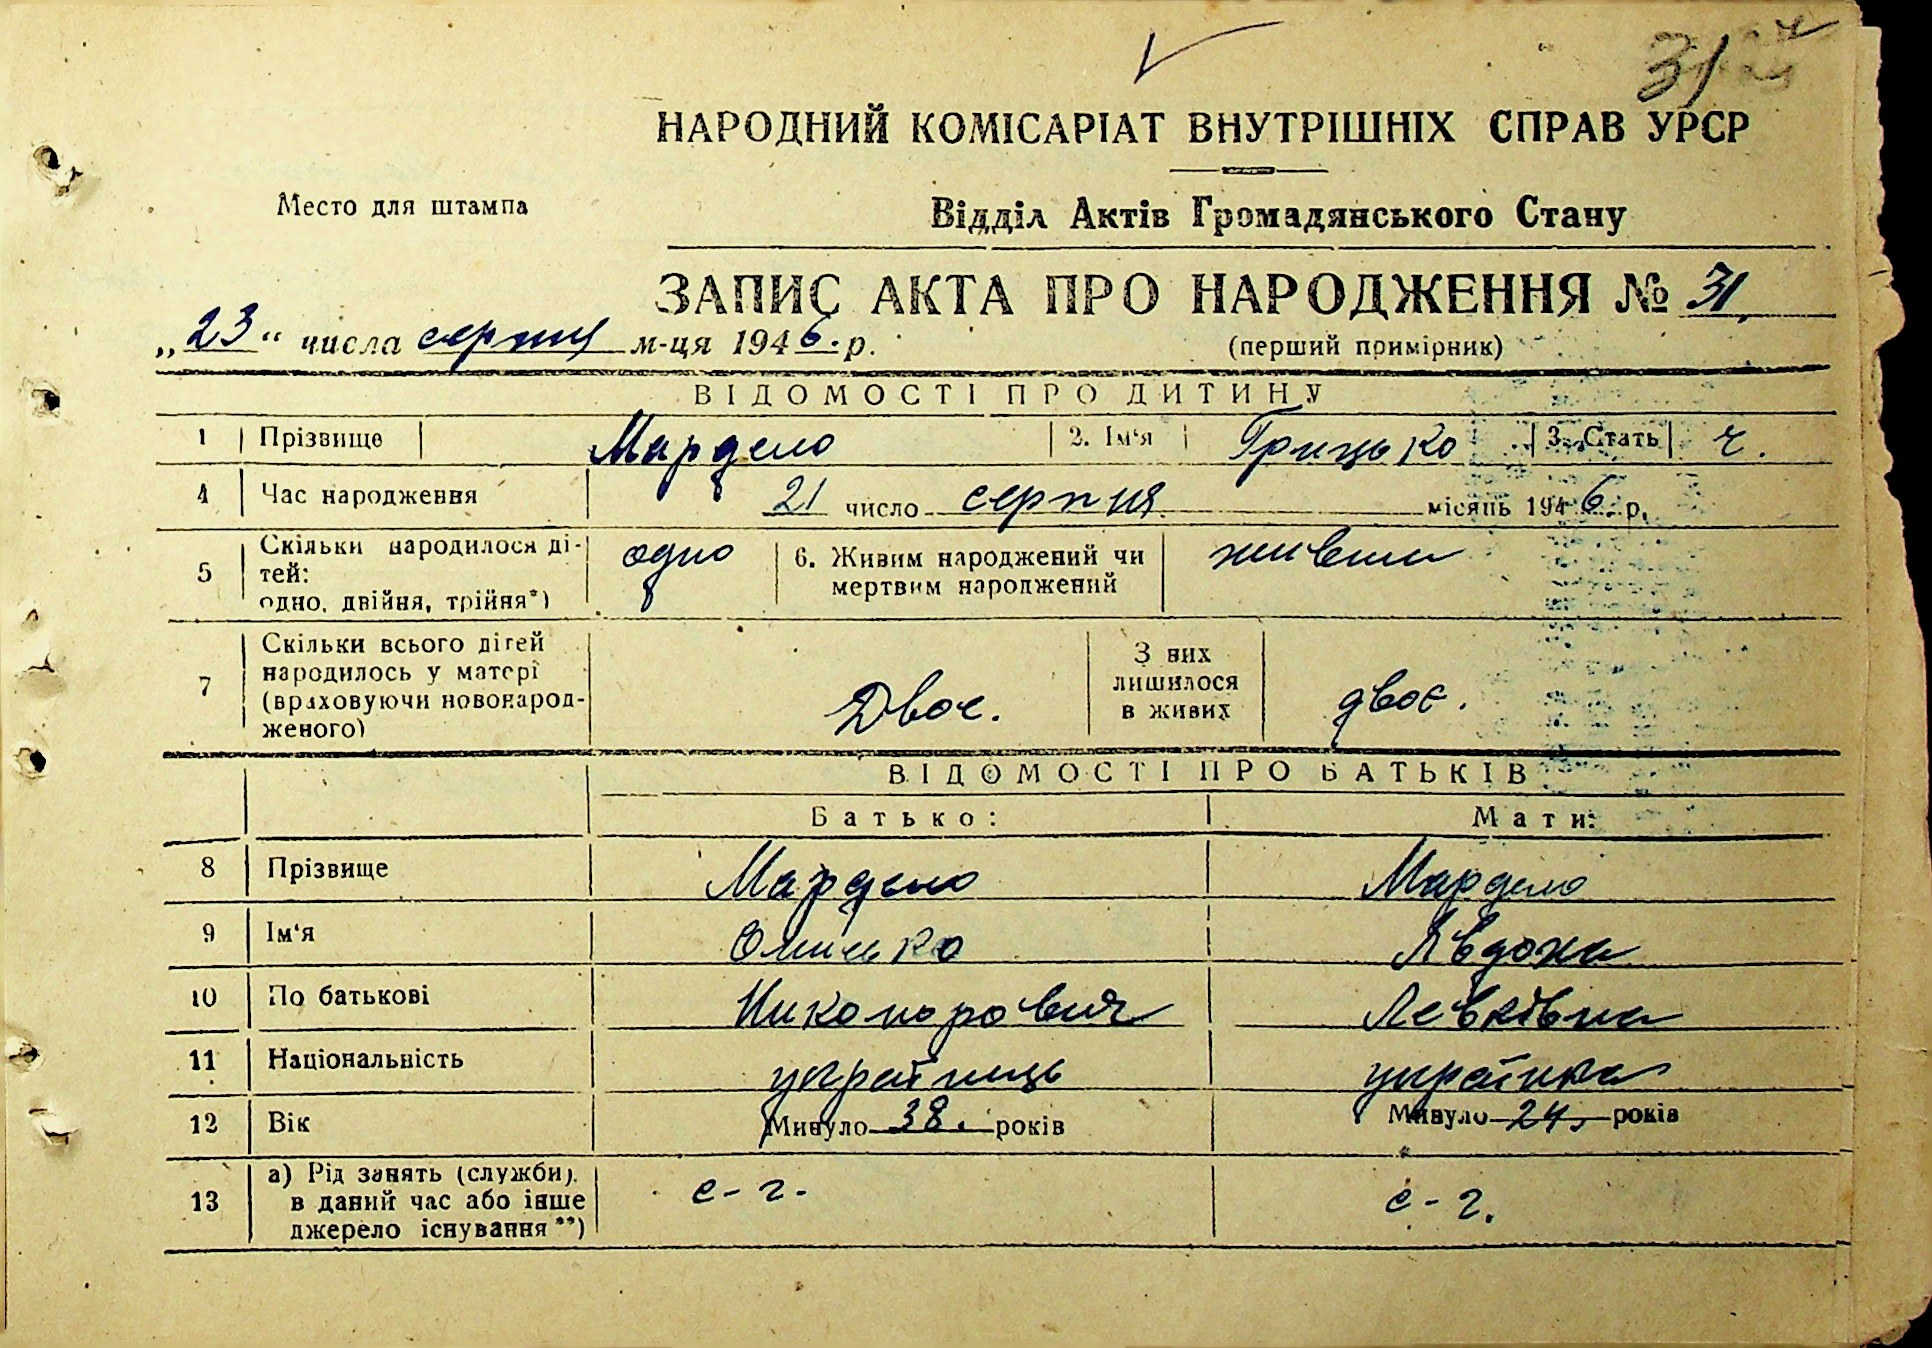 31
НАРОДНИЙ КОМІСАРІАТ ВНУТРІШНІХ СПРАВ УРСР
Место для штампа
Відділ Актів Громадянського Стану
ЗАПИС АКТА ПРО НАРОДЖЕННЯ № 31
„23" числа серпня м-ця 1946. р. (перший примірник)
ВІДОМОСТІ ПРО ДИТИНУ
1 Прізвище Мардело 2. Ім'я Грицько 3. Стать ч.
4 Час народження 21 число серпня місяць 1946. р.
5 Скільки народилося ді-
тей:
одно, двійня, трійня*) одно 6. Живим народжений чи
мертвим народжений живим
7 Скільки всього дітей
народилось у матері
(враховуючи новонарод-
женого) Двоє. З них
лишилося
в живих двоє.
ВІДОМОСТІ ПРО БАТЬКІВ
Батько: Мати:
8 Прізвище Мардело Мардело
9 Ім'я Омелько Явдоха
10 По батькові Никонорович Левківна
11 Національність українець українка
12 Вік Минуло 38. років Минуло 24. років
13 а) Рід занять (служби),
в даний час або інше
джерело існування**) с-г. с-г.